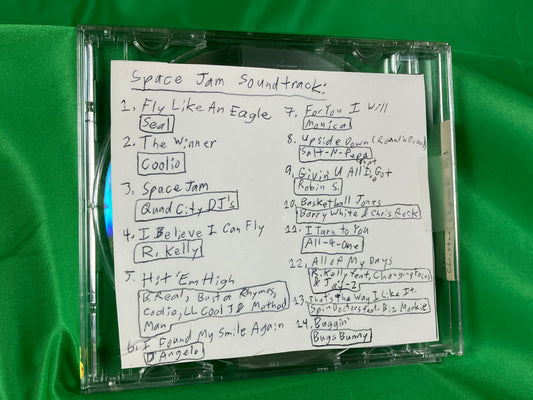 Space Jam Soundtrack:
1. Fly Like An Eagle
Seal
2. The Winner
Coolio
3. Space Jam
Quad City DJ's
4. I Believe I Can Fly
R. Kelly
5. Hit 'Em High
B. Real, Busta Rhymes,
Coolio, LL Cool J & Method
Man
6. I Found My Smile Again
D'Angelo
7. For You I Will
Monica
8. Upside Down (Round-N-Round)
Salt-N-Pepa
9. Givin U All I Got
Robin S.
10. Basketball Jones
Barry White & Chris Rock
11. I Turn to You
All-4-One
12. All of My Days
R. Kelly feat. Changing Faces
& Jay-Z
13. That's the Way I Like It.
Spin Doctors feat. Biz Markie
14. Buggin'
Bugs Bunny